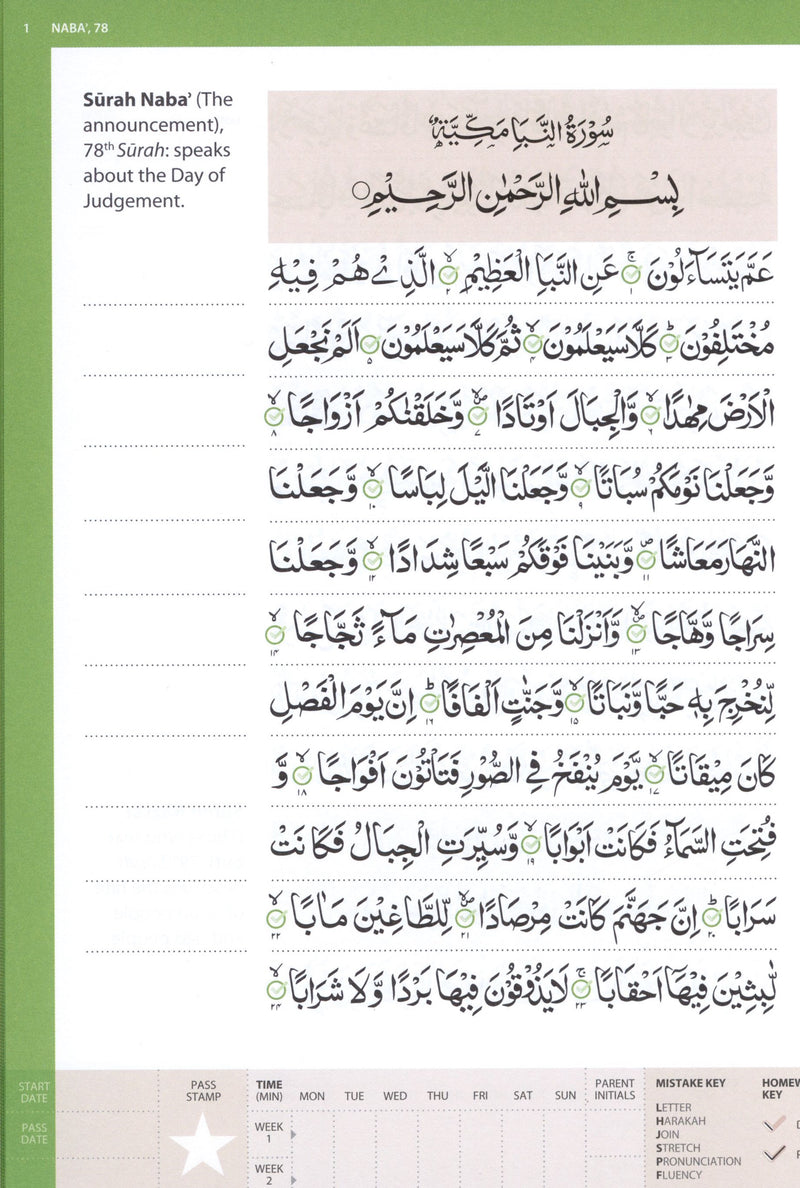 1 NABA’, 78
Sūrah Naba’ (The
announcement),
78th Sūrah: speaks
about the Day of
Judgement.
سُوْرَةُ النَّبَاِ مَكِّيَّةٌ
بِسْمِ اللّٰهِ الرَّحْمٰنِ الرَّحِيْمِ
عَمَّ يَتَسَآءَلُوْنَ ۚ ۱ عَنِ النَّبَاِ الْعَظِيْمِ ۙ ۲ الَّذِيْ هُمْ فِيْهِ
مُخْتَلِفُوْنَ ؕ ۳ كَلَّا سَيَعْلَمُوْنَ ۙ ۴ ثُمَّ كَلَّا سَيَعْلَمُوْنَ ۵ اَلَمْ نَجْعَلِ
الْاَرْضَ مِهٰدًا ۙ ۶ وَّالْجِبَالَ اَوْتَادًا ۪ۙ ۷ وَّخَلَقْنٰكُمْ اَزْوَاجًا ۙ ۸
وَّجَعَلْنَا نَوْمَكُمْ سُبَاتًا ۙ ۹ وَّجَعَلْنَا الَّيْلَ لِبَاسًا ۙ ۱۰ وَّجَعَلْنَا
النَّهَارَ مَعَاشًا ۪ ۱۱ وَّبَنَيْنَا فَوْقَكُمْ سَبْعًا شِدَادًا ۙ ۱۲ وَّجَعَلْنَا
سِرَاجًا وَّهَّاجًا ۪ۙ ۱۳ وَّاَنْزَلْنَا مِنَ الْمُعْصِرٰتِ مَآءً ثَجَّاجًا ۙ ۱۴
لِّنُخْرِجَ بِهٖ حَبًّا وَّنَبَاتًا ۙ ۱۵ وَّجَنّٰتٍ اَلْفَافًا ؕ ۱۶ اِنَّ يَوْمَ الْفَصْلِ
كَانَ مِيْقَاتًا ۙ ۱۷ يَّوْمَ يُنْفَخُ فِي الصُّوْرِ فَتَاْتُوْنَ اَفْوَاجًا ۙ ۱۸ وَّ
فُتِحَتِ السَّمَآءُ فَكَانَتْ اَبْوَابًا ۙ ۱۹ وَّسُيِّرَتِ الْجِبَالُ فَكَانَتْ
سَرَابًا ؕ ۲۰ اِنَّ جَهَنَّمَ كَانَتْ مِرْصَادًا ۪ۙ ۲۱ لِّلطَّاغِيْنَ مَاٰبًا ۙ ۲۲
لّٰبِثِيْنَ فِيْهَاۤ اَحْقَابًا ۚ ۲۳ لَا يَذُوْقُوْنَ فِيْهَا بَرْدًا وَّلَا شَرَابًا ۙ ۲۴
START DATE
PASS DATE
PASS STAMP
TIME (MIN) MON TUE WED THU FRI SAT SUN
WEEK 1
WEEK 2
PARENT INITIALS
MISTAKE KEY
LETTER
HARAKAH
JOIN
STRETCH
PRONUNCIATION
FLUENCY
KEY